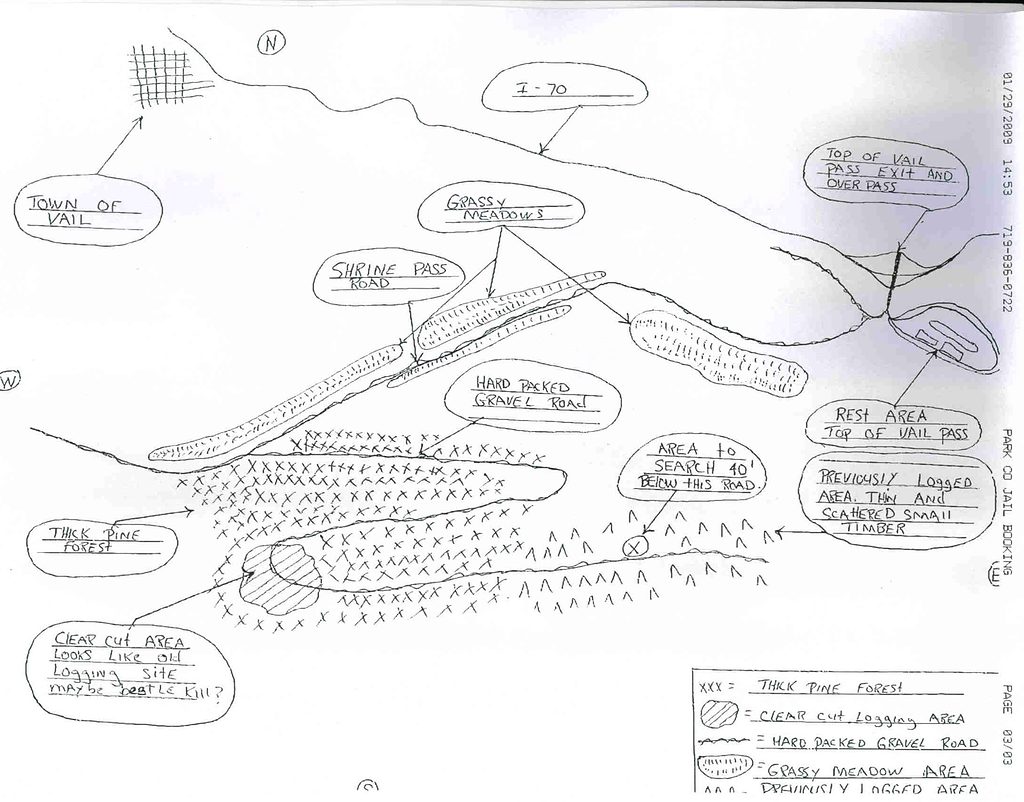 N
I-70
TOP OF VAIL
PASS EXIT AND
OVER PASS
TOWN OF
VAIL
GRASSY
MEADOWS
SHRINE PASS
ROAD
W
HARD PACKED
GRAVEL ROAd
REST AREA
TOP OF VAIL PASS
AREA to
SEARCH 40'
BELOW tHIS ROAD
PREVIOUSLY LOGGED
AREA. THIN AND
SCATHERED SMAll
TIMBER
THICK PINE
FOREST
X
E
CLEAR CUT AREA
LOOKS LIKE old
LOGGING SITE
MAYBE bEEtLE KILL?
XXX = THICK PINE FOREST
= CLEAR CUT LOGGING AREA
= HARD PACKED GRAVEL ROAD
= GRASSY MEADOW AREA
PREVIOUSLY LOGGED AREA
01/29/2009 14:53 719-836-0722 PARK CO JAIL BOOKING PAGE 03/03